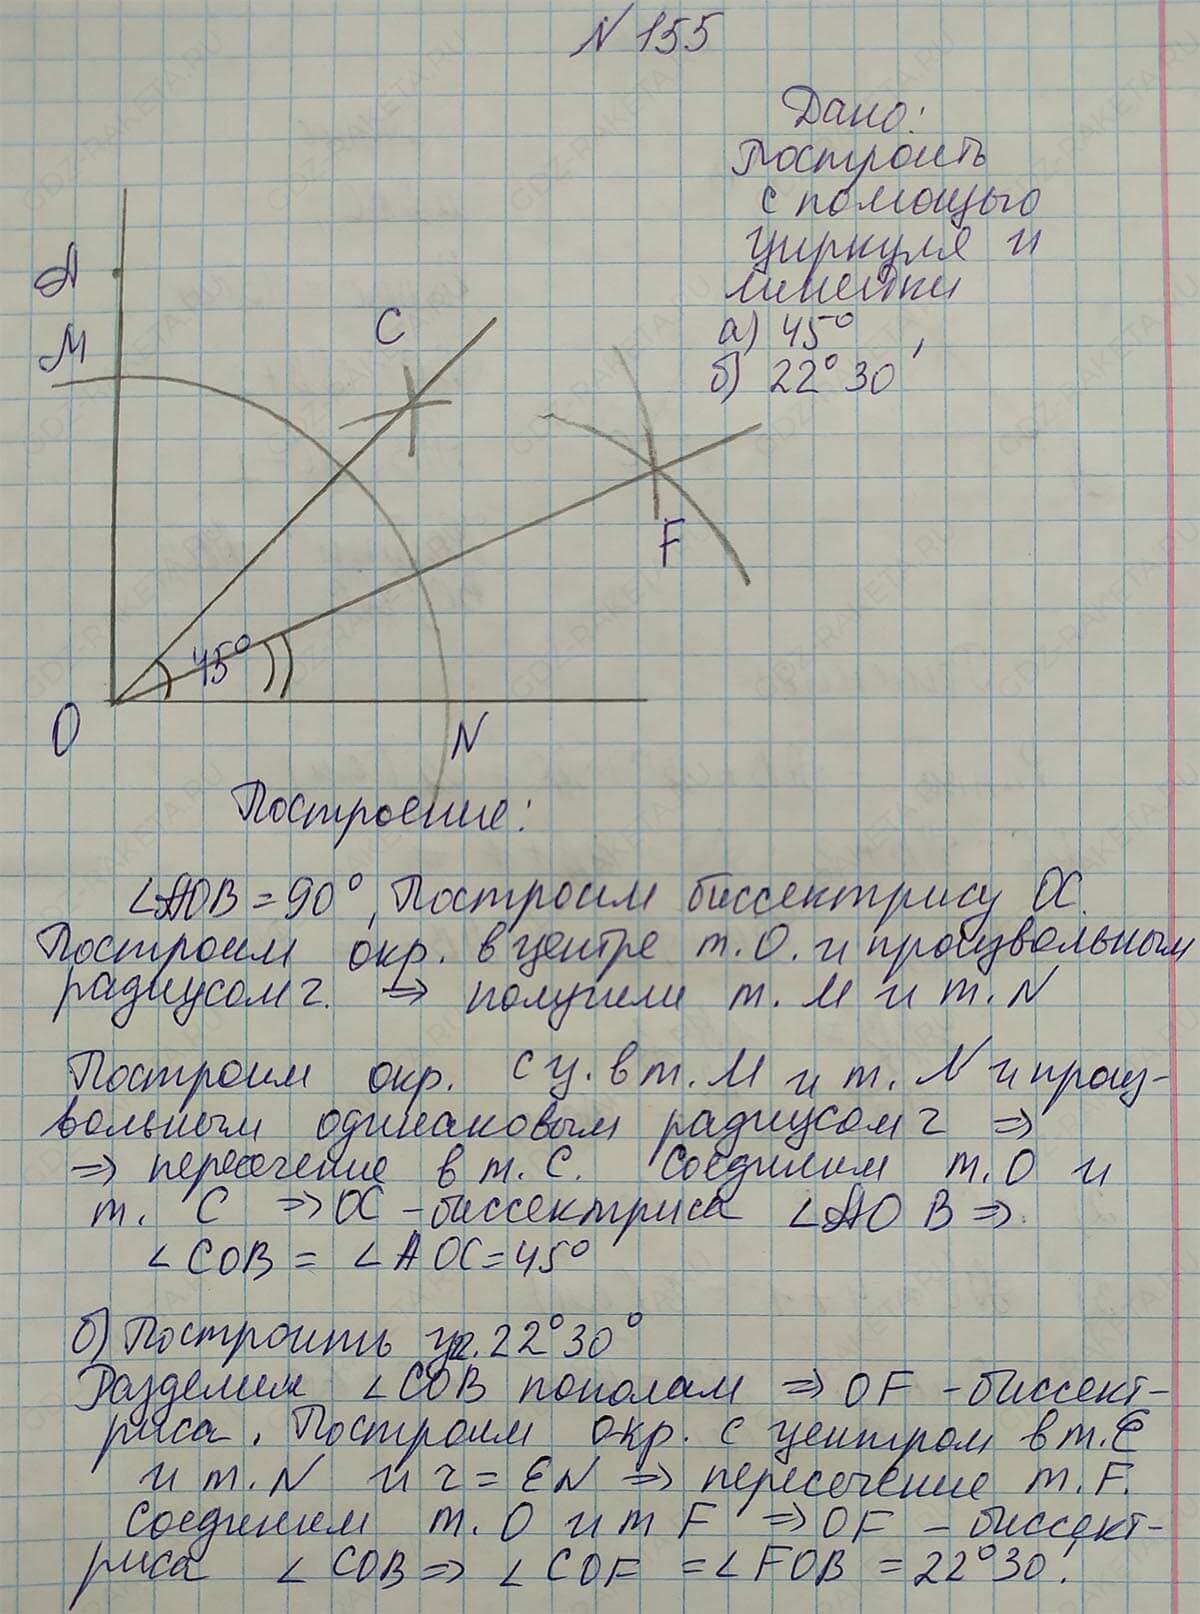 N 155
Дано:
Построить
с помощью
циркуля и
линейки
а) 45°
б) 22° 30'
A
M
C
F
45°
O
N
Построение:
∠AOB = 90°, Построим биссектрису OC.
Построим окр. в центре т. О. и произвольным
радиусом r. ⇒ получили т. M и т. N
Построим окр. с ц. в т. M и т. N и произ-
вольным одинаковым радиусом r ⇒
⇒ пересечение в т. C. Соединим т. O и
т. C ⇒ OC - биссектриса ∠AOB ⇒
∠COB = ∠AOC = 45°
б) Построить уг. 22°30°
Разделим ∠COB пополам ⇒ OF - биссект-
риса. Построим окр. с центром в т. E
и т. N и r = EN ⇒ пересечение т. F.
Соединим т. O и т F ⇒ OF - биссект-
риса ∠COB ⇒ ∠COF = ∠FOB = 22°30'.
GDZ-RAKETA.RU